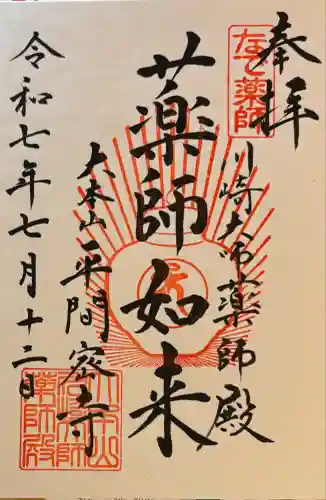 奉拝
なで薬師
川崎大師薬師殿
薬師如来
大本山平間密寺
令和七年七月十二日
薬師殿